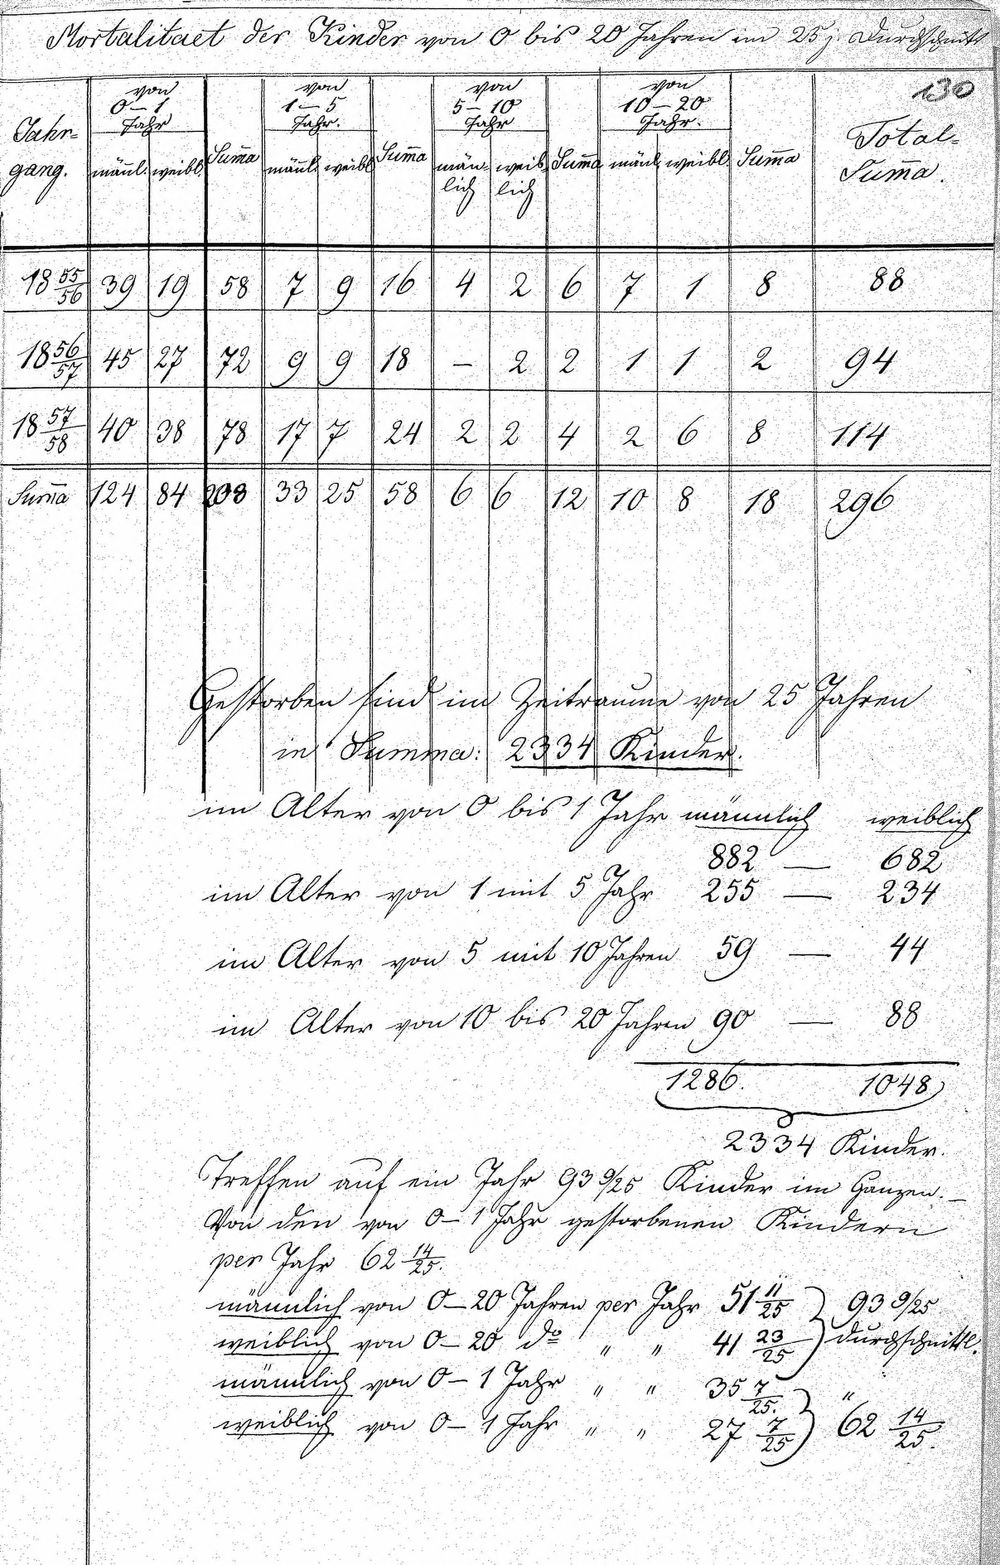 Mortalitaet der Kinder von 0 bis 20 Jahren im 25j Durchschnitt
130
Jahr- gang. | von 0–1 Jahr männl. weibl. | Sum̄a | von 1–5 Jahr. männl. weibl. | Sum̄a | von 5–10 Jahr män- lich weib- lich | Sum̄a | von 10–20 Jahr. mänl. weibl. | Sum̄a | Total- Sum̄a.
18 55/56 39 19 58 7 9 16 4 2 6 7 1 8 88
18 56/57 45 27 72 9 9 18 – 2 2 1 1 2 94
18 57/58 40 38 78 17 7 24 2 2 4 2 6 8 114
Sum̄a 124 84 208 33 25 58 6 6 12 10 8 18 296
Gestorben sind im Zeitraume von 25 Jahren
in Summa: 2334 Kinder.
im Alter von 0 bis 1 Jahr männlich weiblich
882 — 682
im Alter von 1 mit 5 Jahr 255 — 234
im Alter von 5 mit 10 Jahren 59 — 44
im Alter von 10 bis 20 Jahren 90 — 88
1286. 1048
2334 Kinder.
Treffen auf ein Jahr 93 9/25 Kinder im Ganzen. –
Von den von 0–1 Jahr gestorbenen Kindern
per Jahr 62 14/25.
männlich von 0–20 Jahren per Jahr 51 11/25 93 9/25
weiblich von 0–20 do " " 41 23/25 durchschnittl.
männlich von 0–1 Jahr " " 35 7/25. "
weiblich von 0–1 Jahr " " 27 7/25 62 14/25.